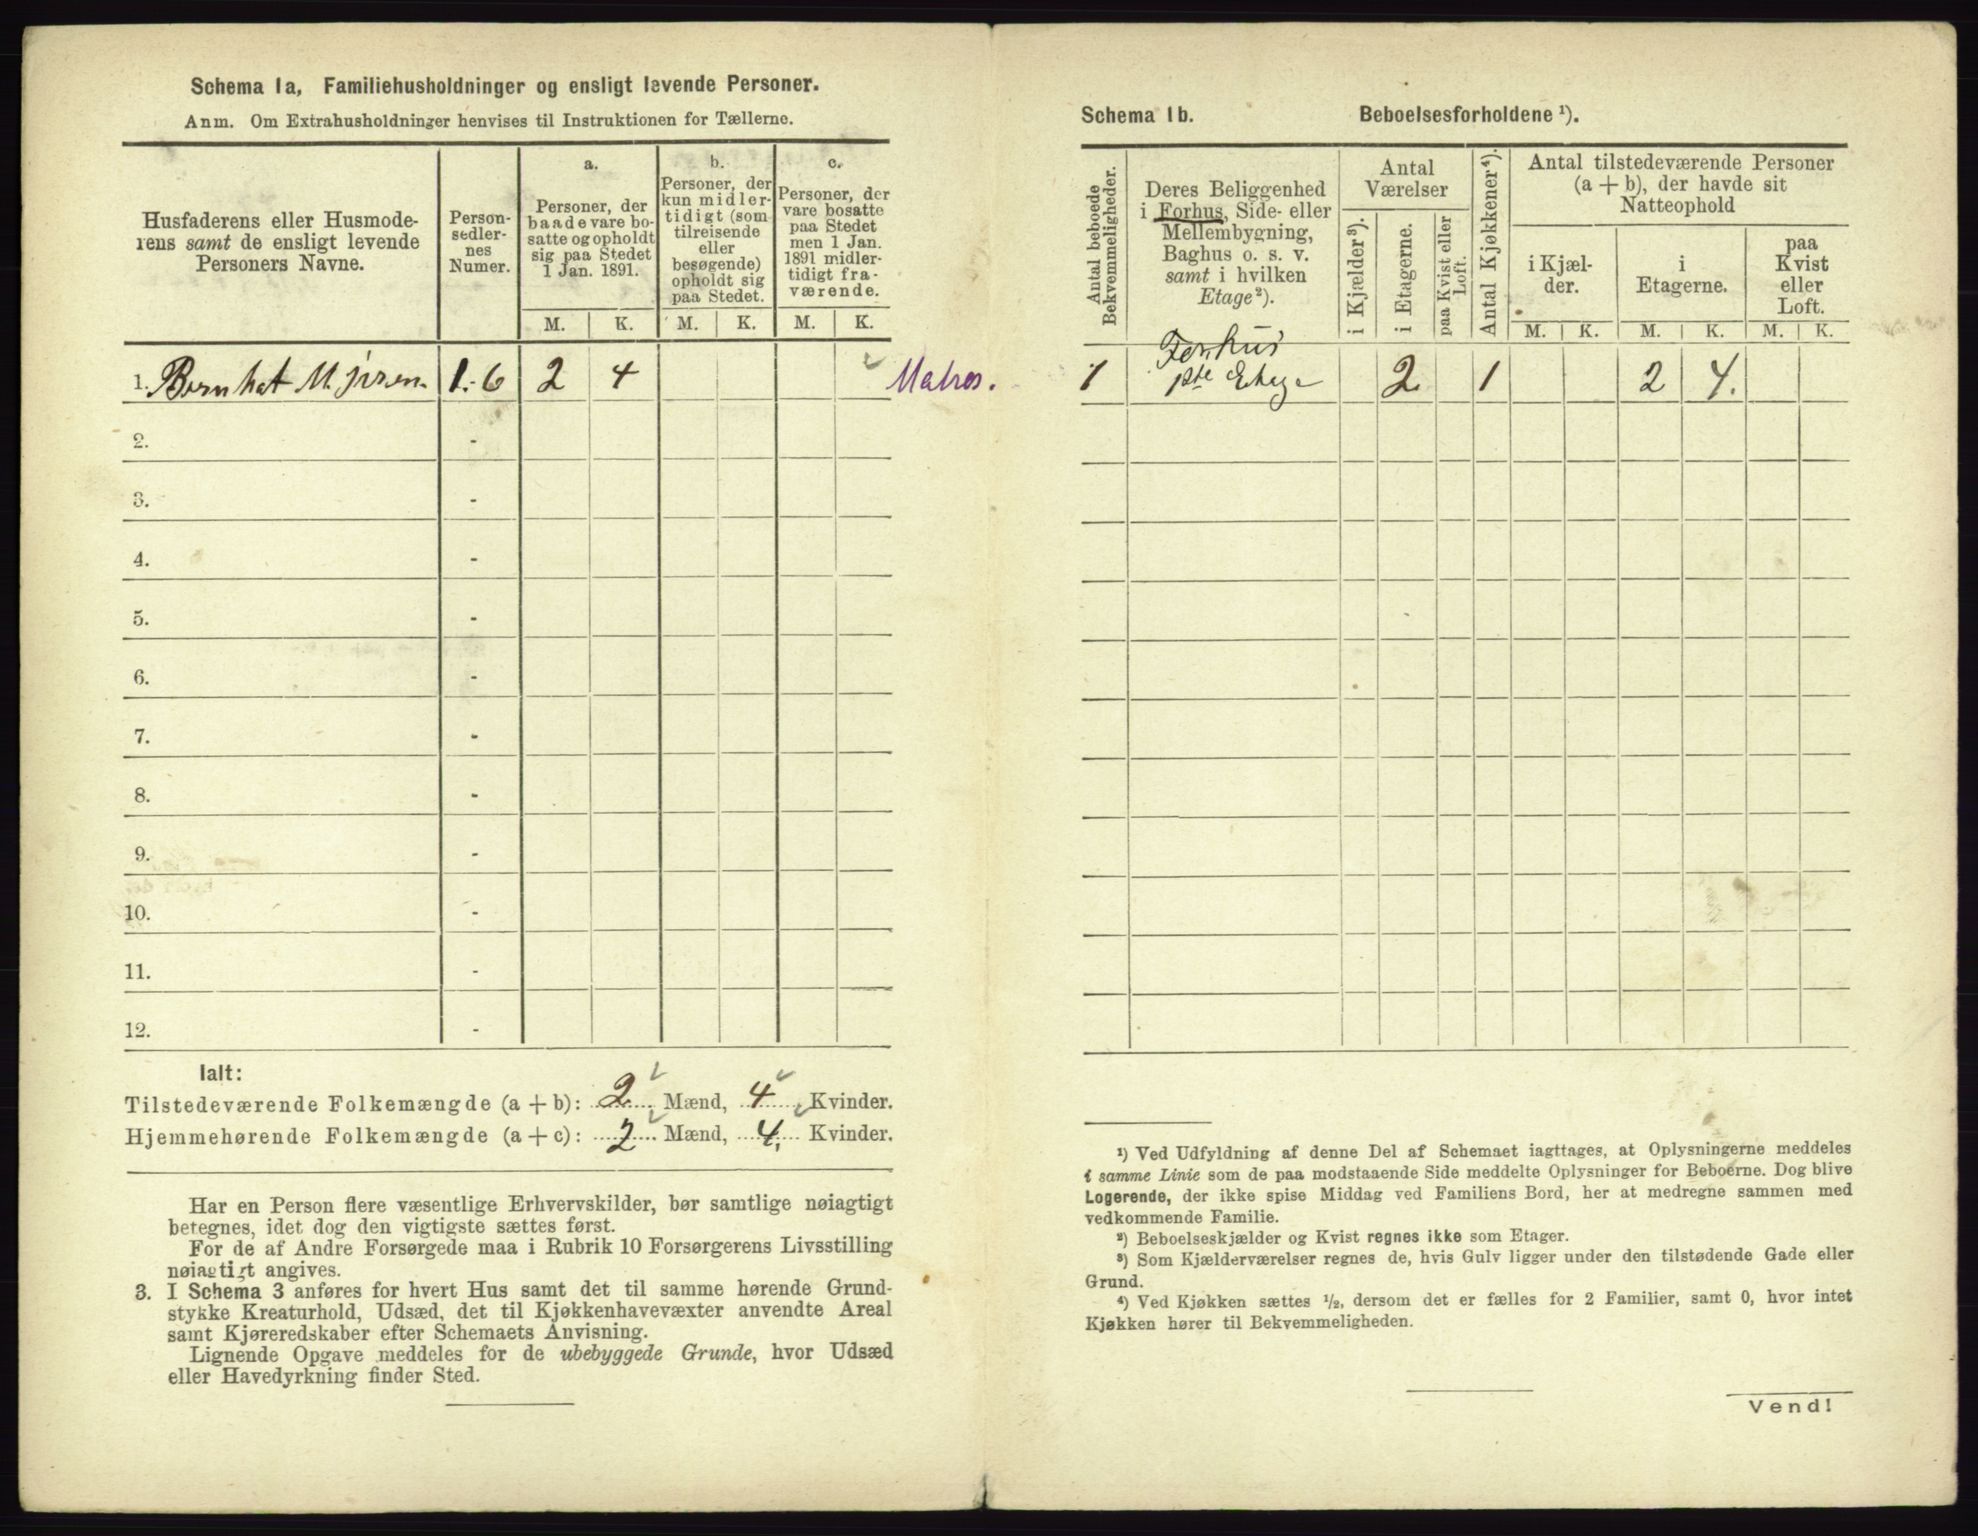 Schema 1a, Familiehusholdninger og ensligt levende Personer.
Anm. Om Extrahusholdninger henvises til Instruktionen for Tællerne.
Husfaderens eller Husmode-
rens samt de ensligt levende
Personers Navne.
Person-
sedler-
nes
Numer.
a.
Personer, der
baade vare bo-
satte og opholdt
sig paa Stedet
1 Jan. 1891.
b.
Personer, der
kun midler-
tidigt (som
tilreisende
eller
besøgende)
opholdt sig
paa Stedet.
c.
Personer, der
vare bosatte
paa Stedet
men 1 Jan.
1891 midler-
tidigt fra-
værende.
M. K. M. K. M. K.
1. 1.-6 2 4 Matros.
2. -
3. -
4. -
5. -
6. -
7. -
8. -
9. -
10. -
11. -
12. -
Ialt:
Tilstedeværende Folkemængde (a + b): 2 Mænd, 4 Kvinder.
Hjemmehørende Folkemængde (a + c): 2 Mænd, 4. Kvinder.
Har en Person flere væsentlige Erhvervskilder, bør samtlige nøiagtigt
betegnes, idet dog den vigtigste sættes først.
For de af Andre Forsørgede maa i Rubrik 10 Forsørgerens Livsstilling
nøiagtigt angives.
3. I Schema 3 anføres for hvert Hus samt det til samme hørende Grund-
stykke Kreaturhold, Udsæd, det til Kjøkkenhavevæxter anvendte Areal
samt Kjøreredskaber efter Schemaets Anvisning.
Lignende Opgave meddeles for de ubebyggede Grunde, hvor Udsæd
eller Havedyrkning finder Sted.
Schema 1b. Beboelsesforholdene ¹).
Antal beboede
Bekvemmeligheder.
Deres Beliggenhed
i Forhus, Side- eller
Mellembygning,
Baghus o. s. v.
samt i hvilken
Etage²).
Antal
Værelser
i Kjælder³).
i Etagerne.
paa Kvist eller
Loft.
Antal Kjøkkener⁴).
Antal tilstedeværende Personer
(a + b), der havde sit
Natteophold
i Kjæl-
der.
i
Etagerne.
paa
Kvist
eller
Loft.
M. K. M. K. M. K.
Forhus
1 1ste Etage 2 1 2 4.
¹) Ved Udfyldning af denne Del af Schemaet iagttages, at Oplysningerne meddeles
i samme Linie som de paa modstaaende Side meddelte Oplysninger for Beboerne. Dog blive
Logerende, der ikke spise Middag ved Familiens Bord, her at medregne sammen med
vedkommende Familie.
²) Beboelseskjælder og Kvist regnes ikke som Etager.
³) Som Kjælderværelser regnes de, hvis Gulv ligger under den tilstødende Gade eller
Grund.
⁴) Ved Kjøkken sættes ½, dersom det er fælles for 2 Familier, samt 0, hvor intet
Kjøkken hører til Bekvemmeligheden.
Vend!